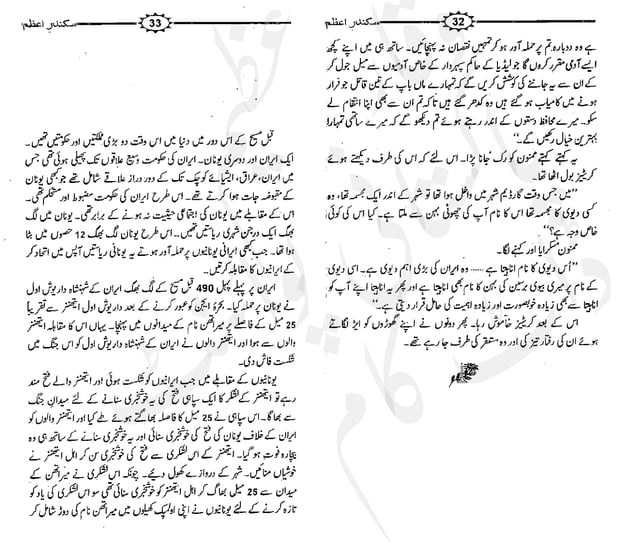 32
سکندرِ اعظم
ہے وہ دوبارہ تم پر حملہ آور ہو کر تمہیں نقصان نہ پہنچائیں۔ ساتھ ہی میں اپنے کچھ
ایسے آدمی مقرر کروں گا جو لیڈیا کے حاکم سپہردار کے خاص آدمیوں سے میل جول کر
کے ان سے یہ جاننے کی کوشش کریں گے کہ تمہارے ماں باپ کے تین قاتل جو فرار
ہونے میں کامیاب ہو گئے ہیں وہ کدھر گئے ہیں تا کہ تم ان سے بھی اپنا انتقام لے
سکو۔ میرے محافظ دستوں کے اندر رہتے ہوئے تم دیکھو گے کہ میرے ساتھی تمہارا
بہترین خیال رکھیں گے۔''
یہ کہتے کہتے ممنون کو رک جانا پڑا۔ اس لئے کہ اس کی طرف دیکھتے ہوئے
کریٹیز بول اٹھا تھا۔
''میں جس وقت گارڈیم شہر میں داخل ہوا تھا تو شہر کے اندر ایک مجسمہ تھا، وہ
کسی دیوی کا مجسمہ تھا اس کا نام آپ کی چھوٹی بہن سے ملتا ہے۔ کیا اس کی کوئی
خاص وجہ ہے؟''
ممنون مسکرایا اور کہنے لگا۔
''اُس دیوی کا نام اناہیتا ہے ..... وہ ایران کی بڑی اہم دیوی ہے۔ اسی دیوی
کے نام پر میری بیوی برسین کی بہن کا نام بھی اناہیتا ہے اور یہ اناہیتا اپنے آپ کو
اناہیتا سے بھی زیادہ خوبصورت اور زیادہ اہمیت کی حامل قرار دیتی ہے۔''
اس کے بعد کریٹیز خاموش رہا۔ پھر دونوں نے اپنے گھوڑوں کو ایڑ لگاتے
ہوئے ان کی رفتار تیز کی اور وہ مستقر کی طرف جا رہے تھے۔
33
سکندرِ اعظم
قبل مسیح کے اس دور میں دنیا میں اس وقت دو بڑی مملکتیں اور حکومتیں تھیں۔
ایک ایران اور دوسری یونان۔ ایران کی حکومت وسیع علاقوں تک پھیلی ہوئی تھی جس
میں ایران، عراق، ایشیائے کوچک تک کے دور دراز علاقے شامل تھے جو بھی یونان
کے مقبوضہ جات ہوا کرتے تھے۔ اس طرح ایران کی حکومت مضبوط اور مستحکم تھی۔
اس کے مقابلے میں یونان کی اجتماعی حیثیت نہ ہونے کے برابر تھی۔ یونان میں لگ
بھگ ایک درجن شہری ریاستیں تھیں۔ اس طرح یونان لگ بھگ 12 حصوں میں بٹا
ہوا تھا۔ جب بھی ایرانی یونانیوں پر حملہ آور ہوتے یہ یونانی ریاستیں آپس میں اتحاد کر
کے ایرانیوں کا مقابلہ کرتیں۔
ایران پر پہلے پہل 490 قبل مسیح کے لگ بھگ ایران کے شہنشاہ داریوش اول
نے یونان پر حملہ کیا۔ بحرۂ ایجین کو عبور کرنے کے بعد داریوش اول ایتھنز سے تقریباً
25 میل کے فاصلے پر میراتھن نام کے میدانوں میں پہنچا۔ یہاں اس کا مقابلہ ایتھنز
والوں سے ہوا اور ایتھنز والوں نے ایران کے شہنشاہ داریوش اول کو اس جنگ میں
شکست فاش دی۔
یونانیوں کے مقابلے میں جب ایرانیوں کو شکست ہوئی اور ایتھنز والے فتح مند
رہے تو ایتھنز کے لشکر کا ایک سپاہی فتح کی یہ خوشخبری سنانے کے لئے میدانِ جنگ
سے بھاگا۔ اس سپاہی نے 25 میل کا فاصلہ بھاگتے ہوئے طے کیا اور ایتھنز والوں کو
ایران کے خلاف یونان کی فتح کی خوشخبری سنائی اور یہ خوشخبری سنانے کے ساتھ ہی وہ
بیچارہ فوت ہو گیا۔ ایتھنز کے اس لشکری سے فتح کی خوشخبری سن کر اہل ایتھنز نے
خوشیاں منائیں۔ شہر کے دروازے کھول دیئے۔ چونکہ اس لشکری نے میراتھن کے
میدان سے 25 میل بھاگ کر اہل ایتھنز کو خوشخبری سنائی تھی سو اس لشکری کی یاد کو
تازہ کرنے کے لئے یونانیوں نے اپنی اولمپک کھیلوں میں میراتھن نام کی دوڑ شامل کر